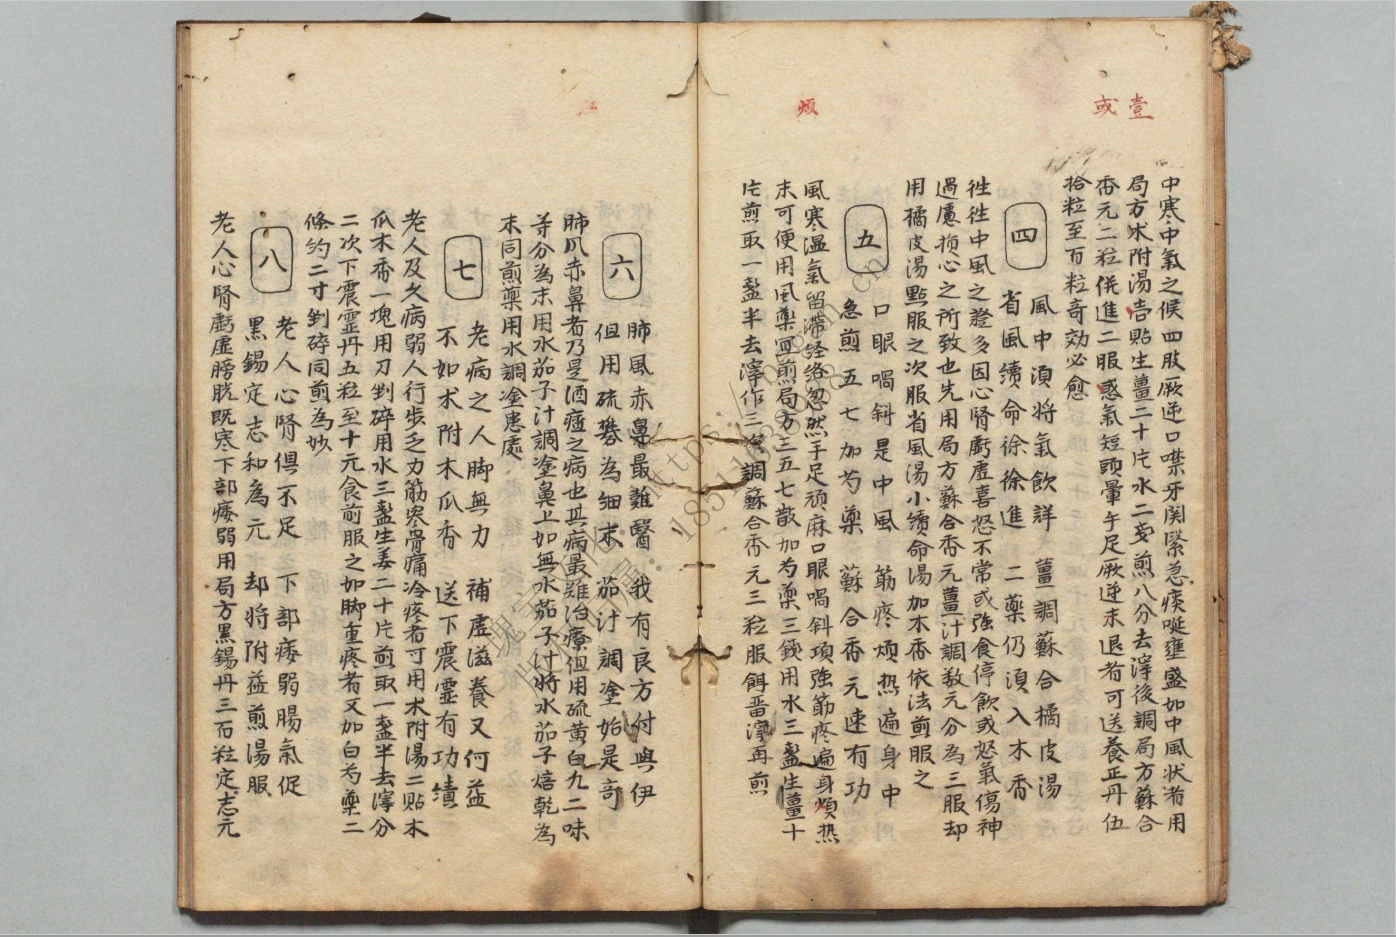 壹
或
煩
中寒中氣之候四肢厥逆口噤牙関緊急痰涎壅盛如中風状者用
局方术附湯壱貼生薑二十片水二盞煎八分去滓後調局方蘇合
香元二粒併進二服惑氣短頭暈手足厥逆未退者可送養正丹伍
拾粒至百粒竒効必愈
四
風中湏将氣飲詳 薑調蘇合橘皮湯
省風續命徐徐進 二藥仍湏入木香
徃徃中風之證多因心腎虧虚喜怒不常或強食停飲或怒氣傷神
過慮損心之所致也先用局方蘇合香元薑汁調数元分為三服却
用橘皮湯點服之次服省風湯小續命湯加木香依法煎服之
五
口眼喎斜是中風 筋疼煩热遍身中
急煎五七加芍藥 蘇合香元速有功
風寒温氣留滯経络忽然手足頑麻口眼喎斜項強筋疼遍身煩热
末可便用風藥冝煎局方三五七散加芍藥三錢用水三盞生薑十
片煎取一盞半去滓作三次調蘇合香元三粒服餌畨滓再煎
六
肺風赤鼻最難醫 我有良方付與伊
但用硫礬為細末 茄汁調塗始是竒
肺风赤鼻者乃是酒㾴之病也其病最难治療但用硫黄白九二味
等分為末用水茄子汁調塗鼻上如無水茄子汁将水茄子焙乾為
末同煎藥用水調塗患處
七
老病之人脚無力 補虚滋養又何益
不如术附木瓜香 送下震霊有功績
老人及久病弱人行歩乏力筋寒骨痛冷疼者可用术附湯二贴木
瓜木香一塊用刀剉碎用水三盞生姜二十片煎取一盞半去滓分
二次下震霊丹五粒至十元食前服之如脚重疼者又加白芍藥二
條约二寸剉碎同煎為妙
八
老人心腎俱不足 下部痿弱腸氣促
黒錫定志和為元 却将附益煎湯服
老人心腎虧虚膀胱既寒下部痿弱用局方黒錫丹三石粒定志元